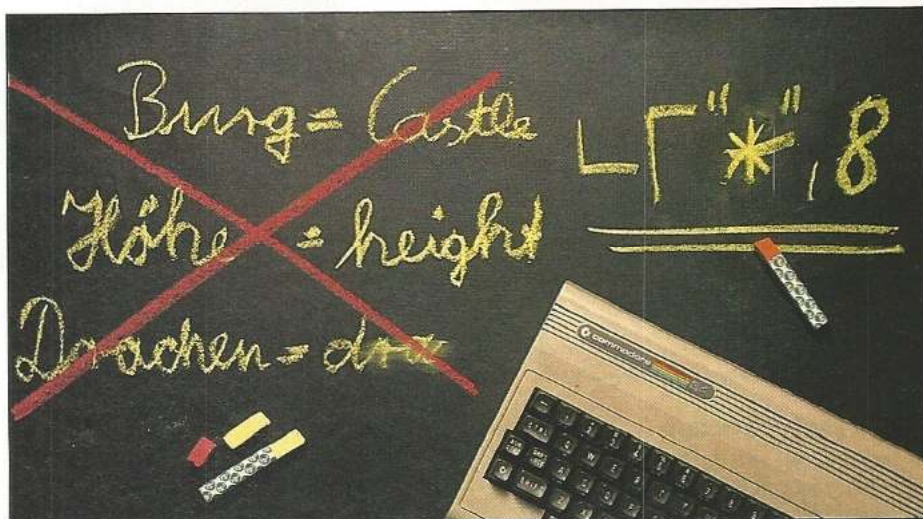 Burg = Castle
Höhe = height
Drachen = dra
L┌"*",8
commodore